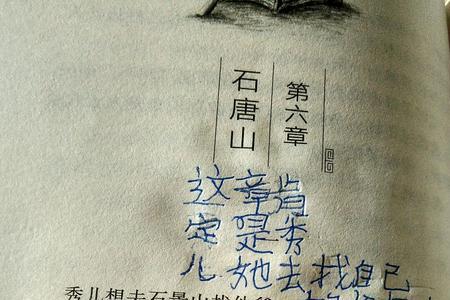 第六章
石唐山
这章肯
定是秀
儿她去找自己
秀儿想去石景山找